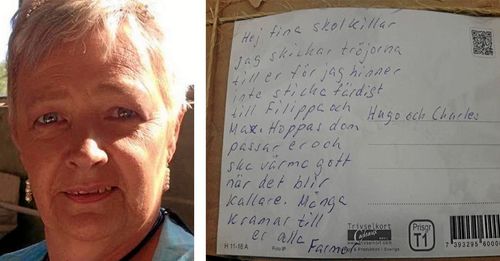 Hej fina skolkillar
Jag skickar tröjorna
till er för jag hinner
inte sticka färdigt
till Filippa och
Max. Hoppas dom
passar er och
ska värma gott
när det blir
kallare. Många
kramar till
er alla Farmor
Hugo och Charles
Trivselkort
H 11-18 A
Foto: IP
Prisgr
T1
7 393295 60000